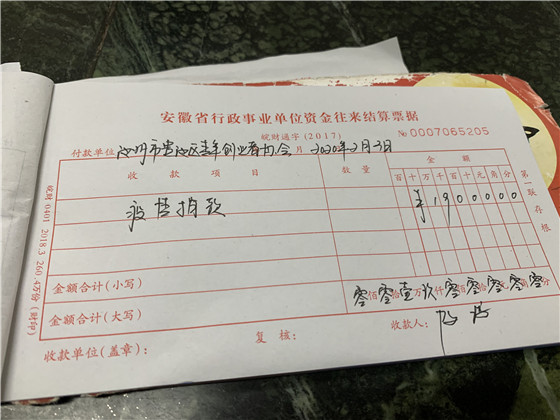 安徽省行政事业单位资金往来结算票据
皖财通字(2017) №0007065205
付款单位 池州市贵池区青年创业 协会 月 2020年2月3日
收款项目 数量 金额
百十万千百十元角分
疫情捐款 ¥1900000
金额合计(小写)
零佰零拾壹万玖仟零百零拾零元零角零分
金额合计(大写)
收款单位(盖章): 复核: 收款人:
第一联 存根
皖财 0401 2018.3 260.4万份(财印)